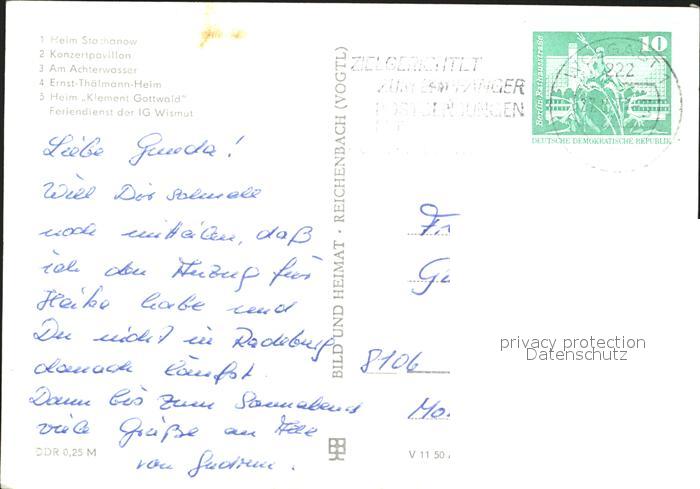 1 Heim Stachanow
2 Konzertpavillon
3 Am Achterwasser
4 Ernst-Thälmann-Heim
5 Heim „Klement Gottwald"
Feriendienst der IG Wismut
Liebe Gunda!
Will Dir schnell
noch mitteilen, daß
ich den Anzug für
Heike habe und
Du nicht in Radeburg
danach läufst.
Dann bis zum Sonnabend
viele Grüße an Alle
von Gudrun.
DDR 0,25 M
BILD UND HEIMAT · REICHENBACH (VOGTL)
V 11 50
ZIELGERICHTET
ZUM EMPFÄNGER
222
10
Berlin, Rathausstraße
DEUTSCHE DEMOKRATISCHE REPUBLIK
Fr
Gu
8106
Mo
privacy protection
Datenschutz